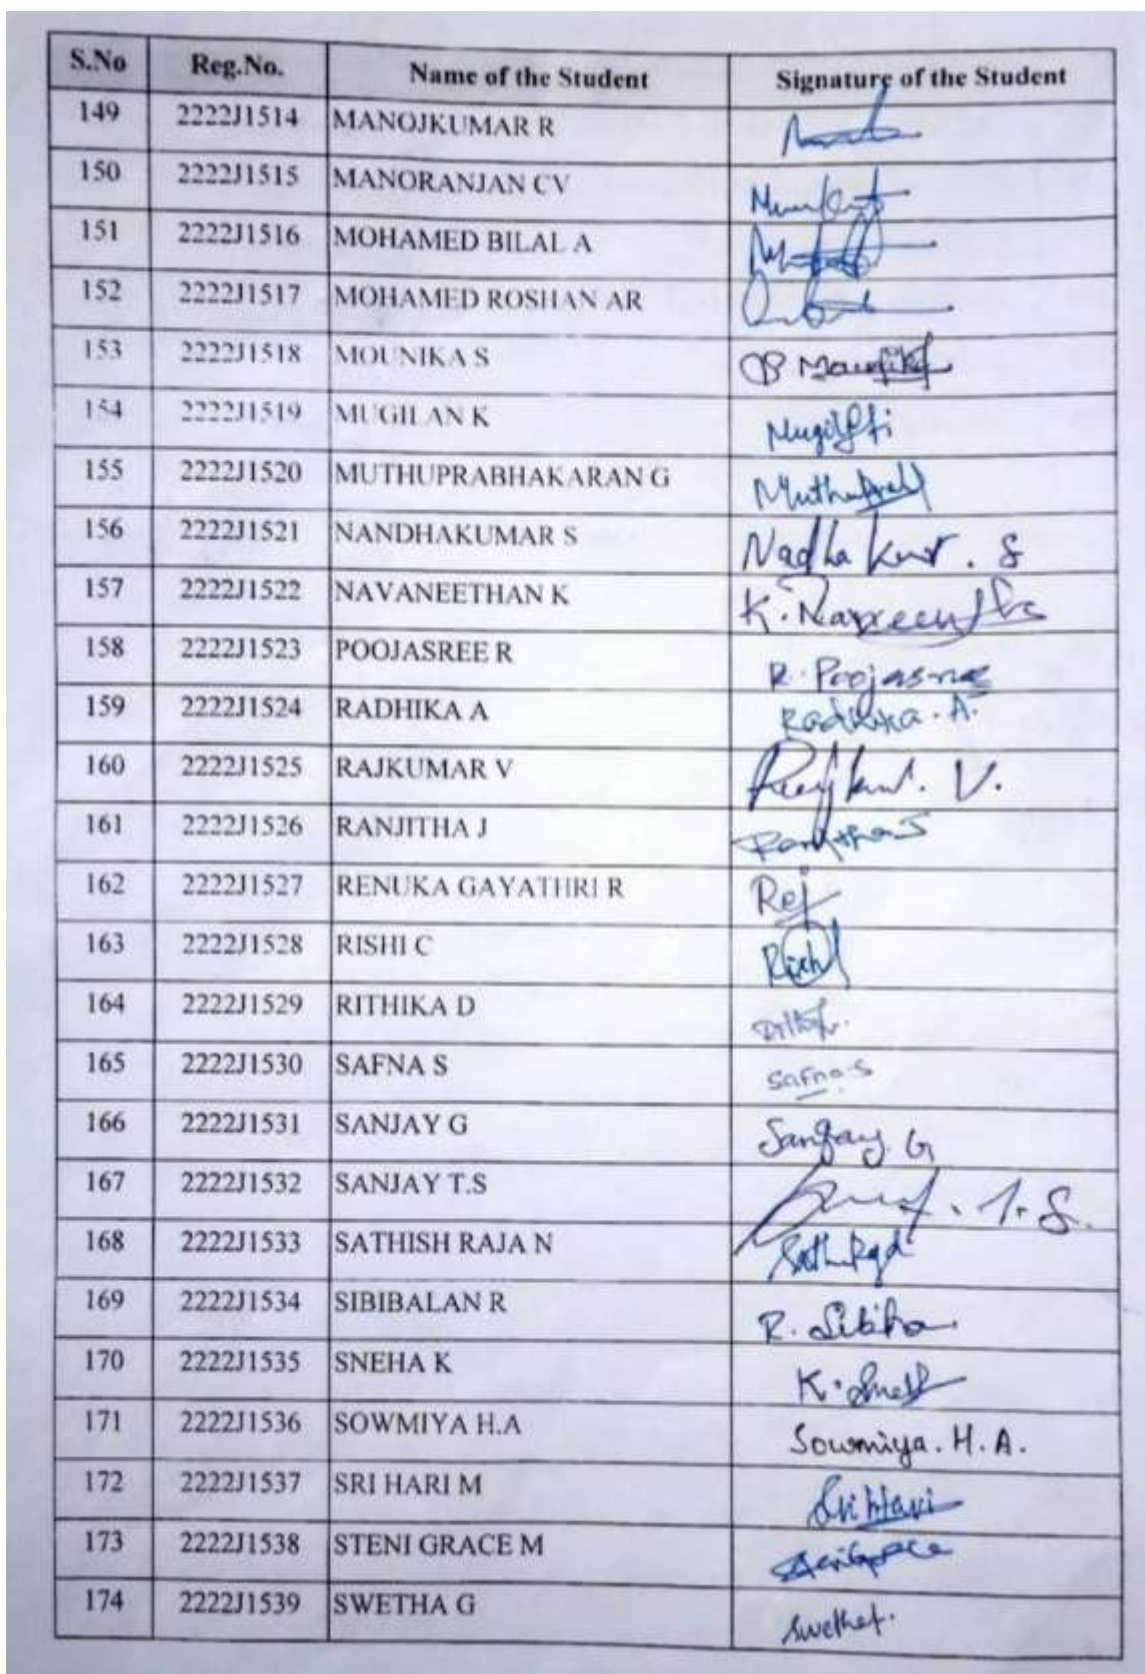 S.No Reg.No. Name of the Student Signature of the Student
149 2222J1514 MANOJKUMAR R
150 2222J1515 MANORANJAN CV
151 2222J1516 MOHAMED BILAL A
152 2222J1517 MOHAMED ROSHAN AR
153 2222J1518 MOUNIKA S
154 2222J1519 MUGILAN K
155 2222J1520 MUTHUPRABHAKARAN G
156 2222J1521 NANDHAKUMAR S
157 2222J1522 NAVANEETHAN K
158 2222J1523 POOJASREE R R. Poojasree
159 2222J1524 RADHIKA A Radhika. A.
160 2222J1525 RAJKUMAR V
161 2222J1526 RANJITHA J
162 2222J1527 RENUKA GAYATHRI R
163 2222J1528 RISHI C
164 2222J1529 RITHIKA D
165 2222J1530 SAFNA S Safna.S
166 2222J1531 SANJAY G Sanjay G
167 2222J1532 SANJAY T.S
168 2222J1533 SATHISH RAJA N
169 2222J1534 SIBIBALAN R
170 2222J1535 SNEHA K
171 2222J1536 SOWMIYA H.A Sowmiya. H. A.
172 2222J1537 SRI HARI M Sri Hari
173 2222J1538 STENI GRACE M
174 2222J1539 SWETHA G